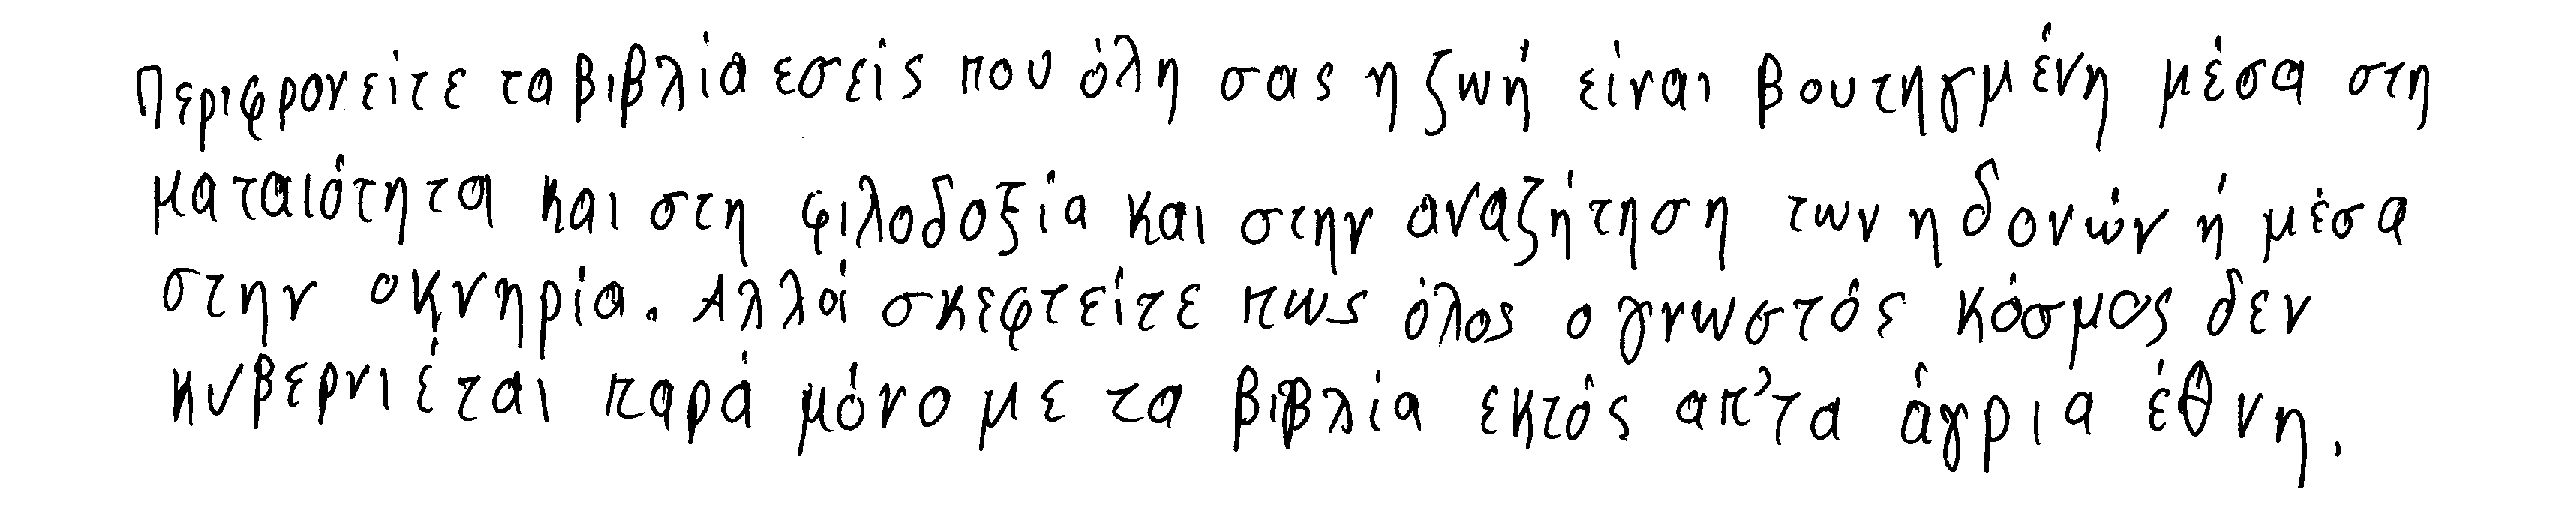 Περιφρονείτε τα βιβλία εσείς που όλη σας η ζωή είναι βουτηγμένη μέσα στη
ματαιότητα και στη φιλοδοξία και στην αναζήτηση των ηδονών ή μέσα
στην οκνηρία. Αλλά σκεφτείτε πως όλος ο γνωστός κόσμος δεν
κυβερνιέται παρά μόνο με τα βιβλία εκτός απ'τα άγρια έθνη.